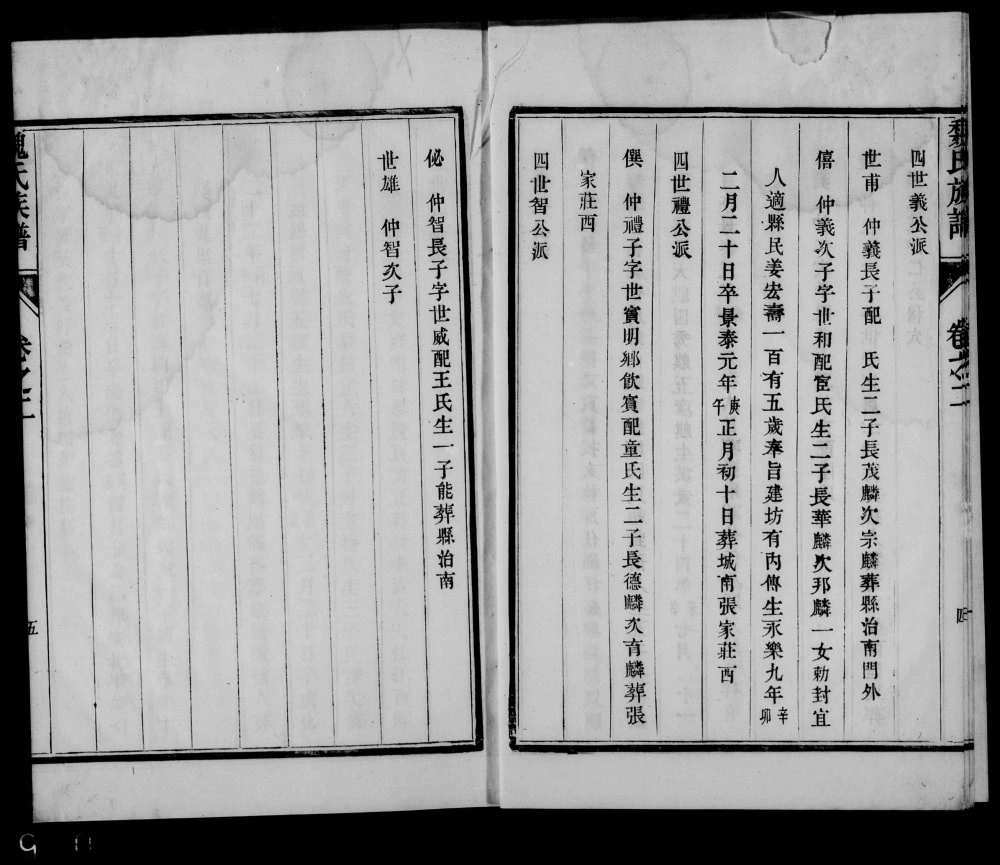 魏氏族譜
卷之二
四
四世義公派
世甫 仲義長子配 氏生二子長茂麟次宗麟葬縣治南門外
僖 仲義次子字世和配宦氏生二子長華麟次邦麟一女勅封宜
人適縣民姜宏壽一百有五歲奉旨建坊有內傳生永樂九年辛卯
二月二十日卒景泰元年庚午正月初十日葬城南張家莊西
四世禮公派
僎 仲禮子字世賓明鄉飲賓配童氏生二子長德麟次有麟葬張
家莊西
四世智公派
佖 仲智長子字世威配王氏生一子能葬縣治南
世雄 仲智次子
魏氏族譜
卷之二
五